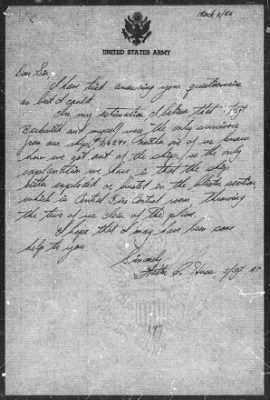 March 2/46
UNITED STATES ARMY
Dear Sir,
I have tried answering your questionnaire
as best I could.
In my estimation I believe that S/Sgt
and myself were the only survivors
from our ship. Neither one of us knows
how we got out of the ship, so the only
explanation we have is that the ship
either exploded or busted in the section,
which is Central Fire Control room, throwing
the two of us clear of the plane.
I hope that I may have been some
help to you.
Sincerely